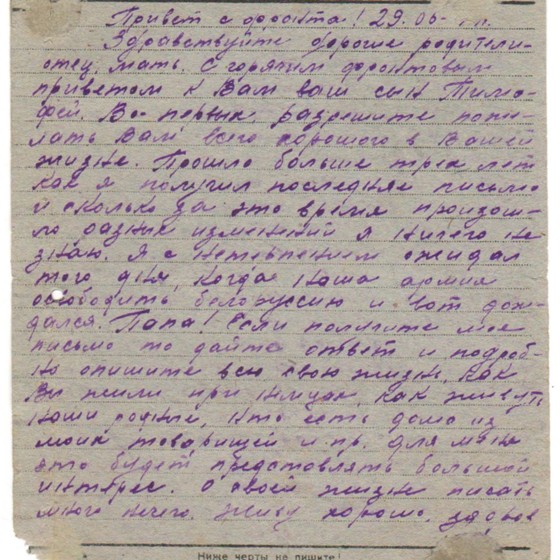 Привет с фронта! 29.06-
Здравствуйте дорогие родители-
отец, мать. С горячим фронтовым
приветом к Вам ваш сын Тимо-
фей. Во-первых, разрешите поже-
лать Вам всего хорошего в Вашей
жизне. Прошло больше трех лет
как я получил последнее письмо
и сколько за это время произош-
ло разных изменений я ничего не
знаю. Я с нетерпением ожидал
того дня, когда наша армия
освободить белоруссию и вот дож-
дался. Папа! Если получите мое
письмо то дайте ответ и подроб-
но опишите всю свою жизнь, как
Вы жили при немцах, как живут
наши родные, кто есть дома из
моих товарищей и пр. для меня
это будет предстовлять большой
интерес. О своей жизне писать
много нечего. Живу хорошо, здоров
Ниже черты не пишите!